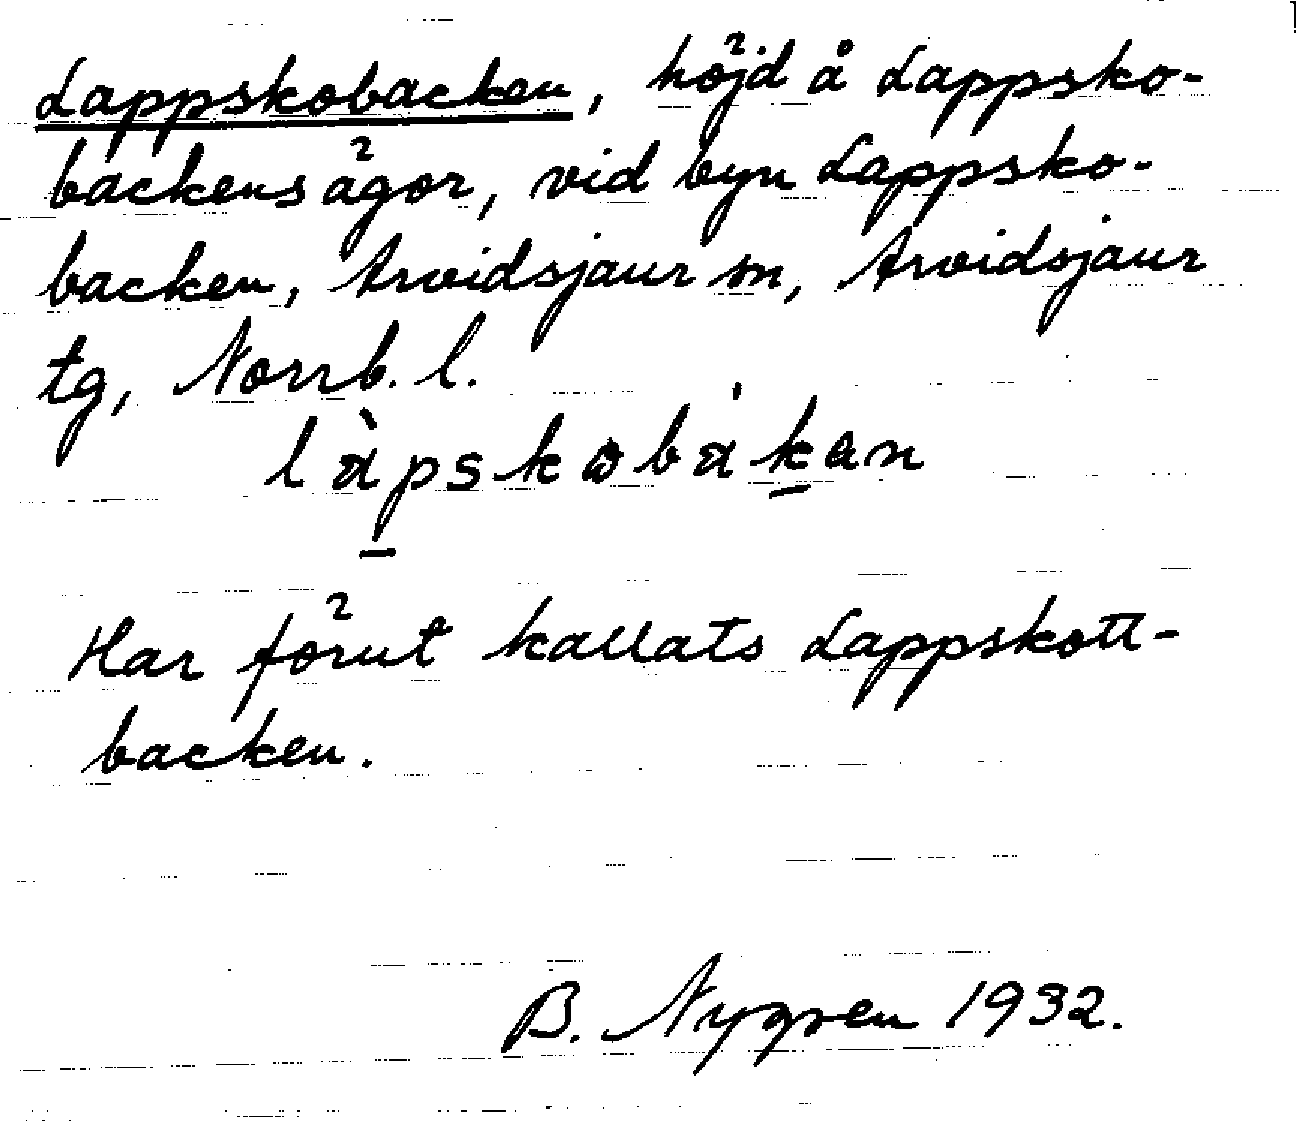 Lappskobacken, höjd å Lappsko-
backens ägor, vid byn Lappsko-
backen, Arvidsjaur sn, Arvidsjaur
tg, Norrb. l.
làpskobákan
Har förut kallats Lappskott-
backen.
B. Nygren 1932.